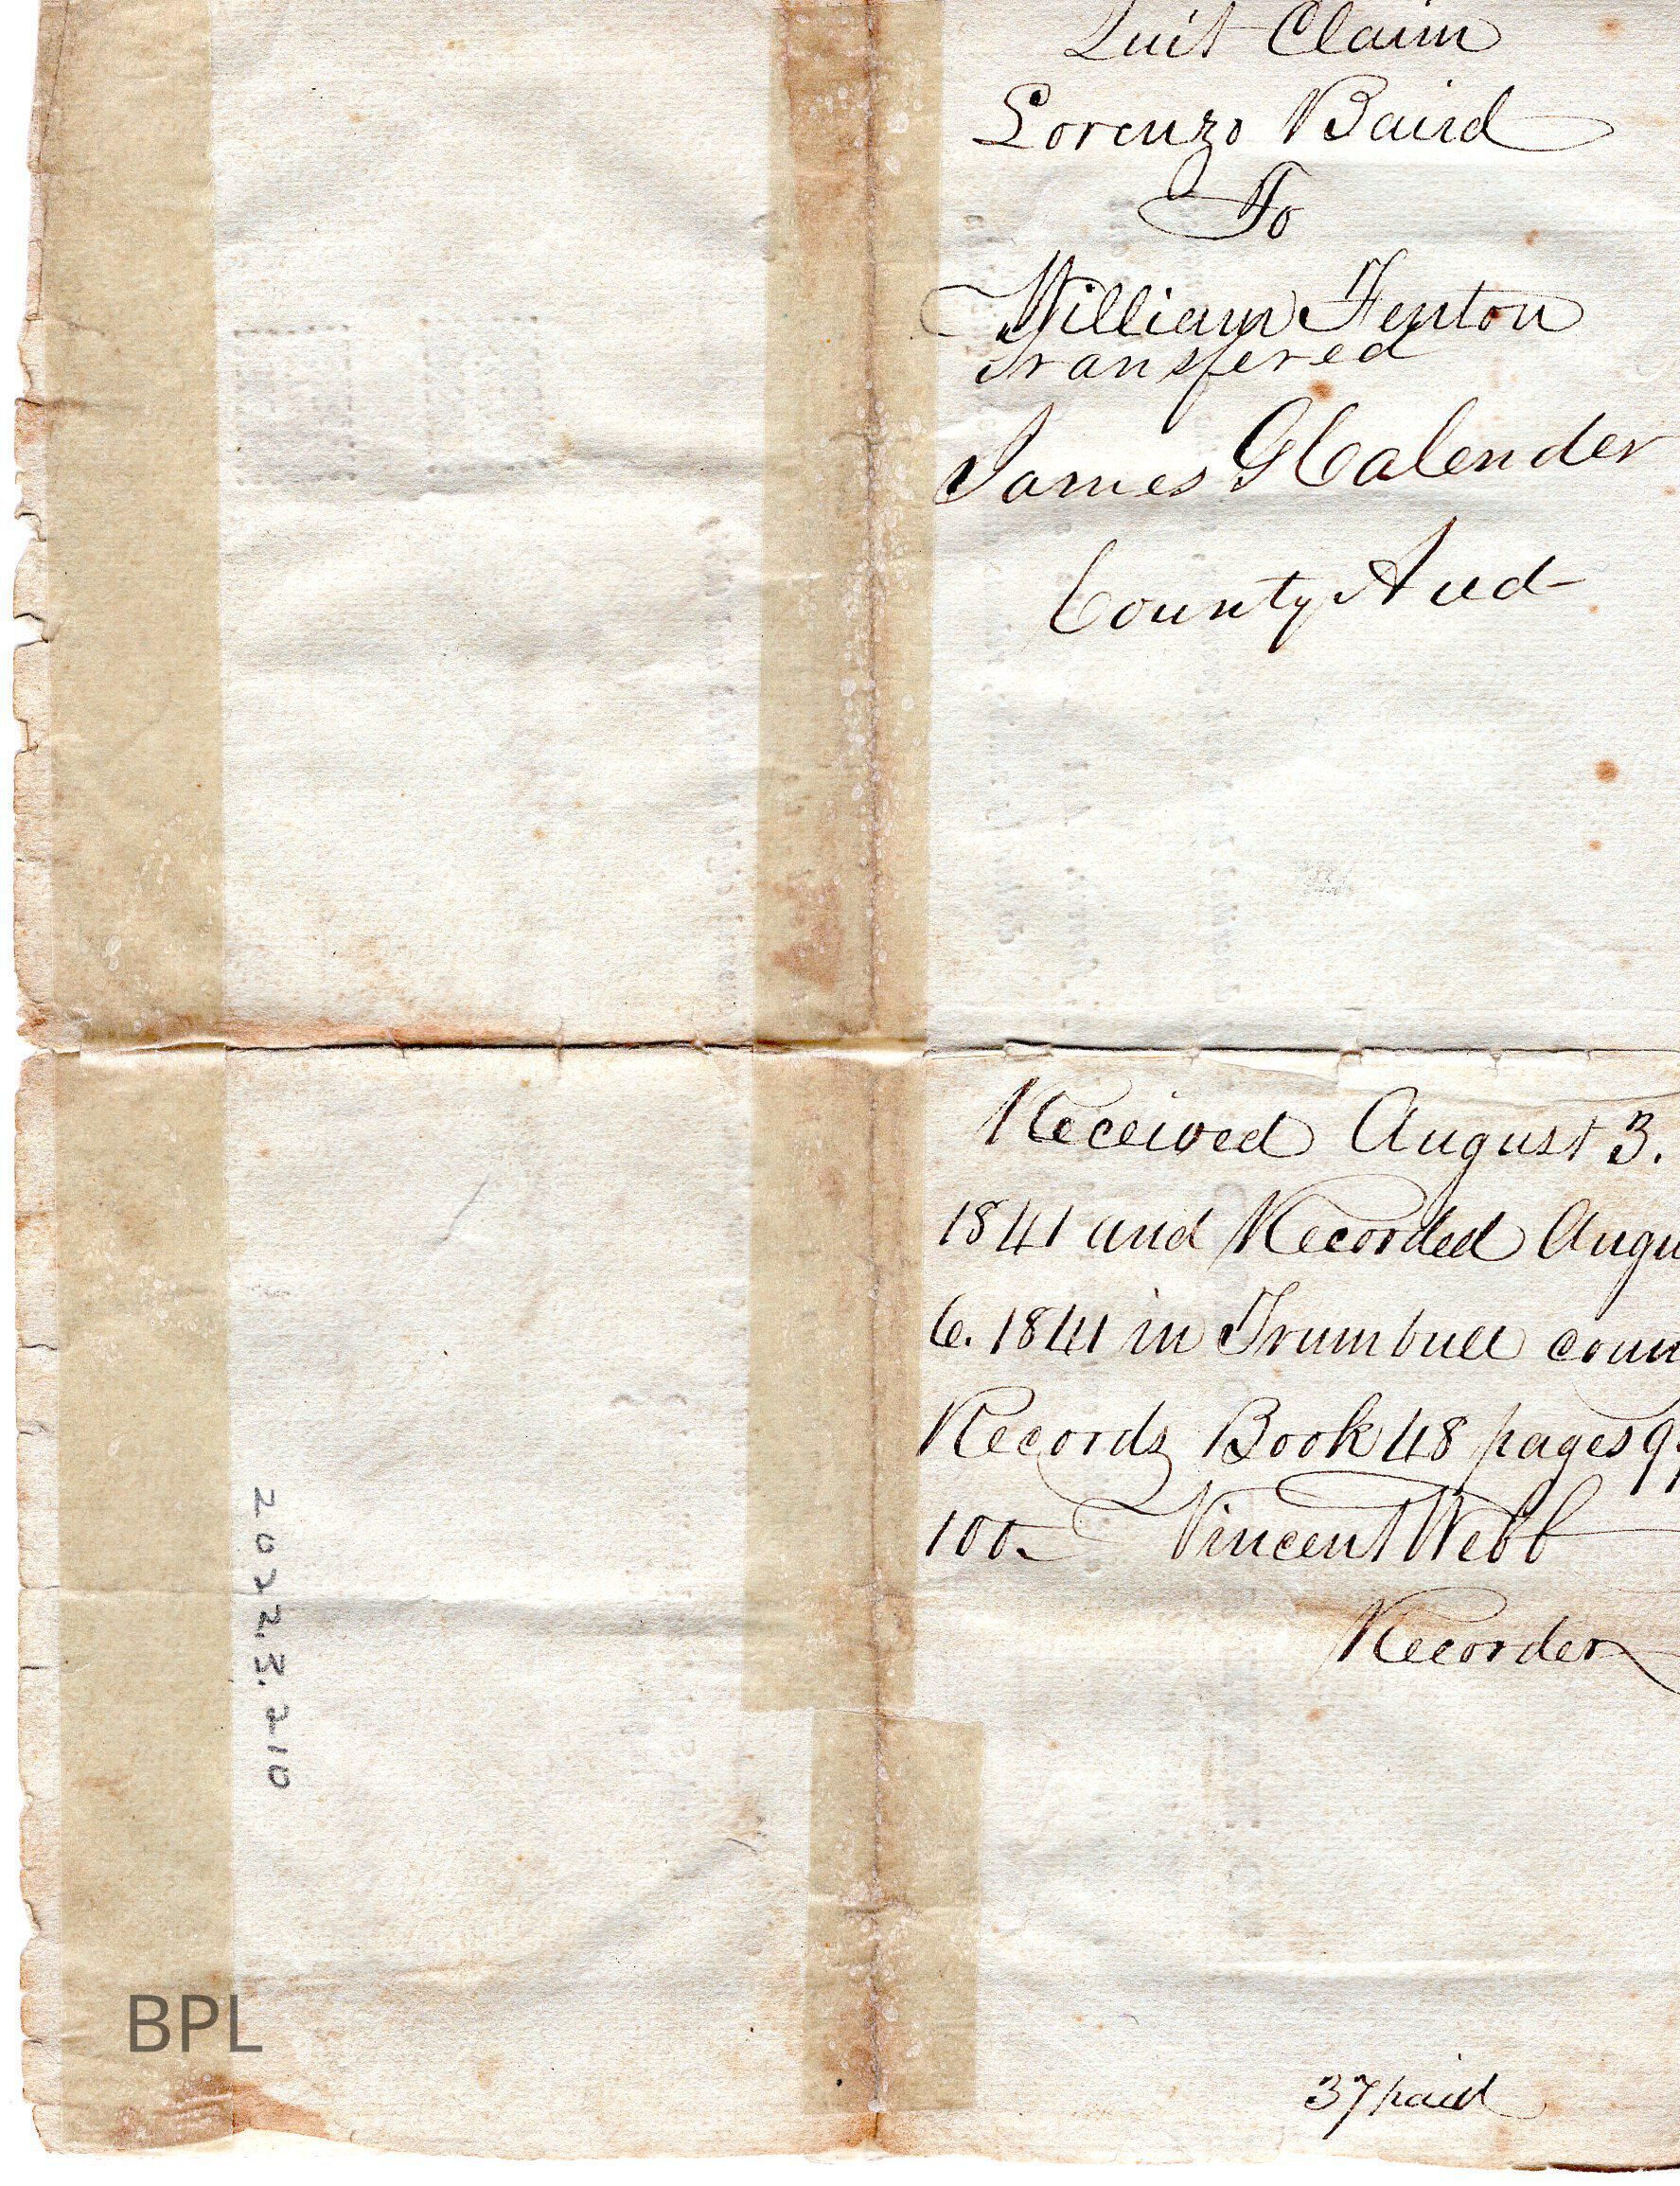 Quit Claim
Lorenzo Baird
To
William Fenton
Transfered
James G Calender
County Aud
Received August 3.
1841 and Recorded Augu
6. 1841 in Trumbull coun
Records Book 48 pages 99
100. Vincent Webb
Recorder
37 paid
2022.3.210
BPL